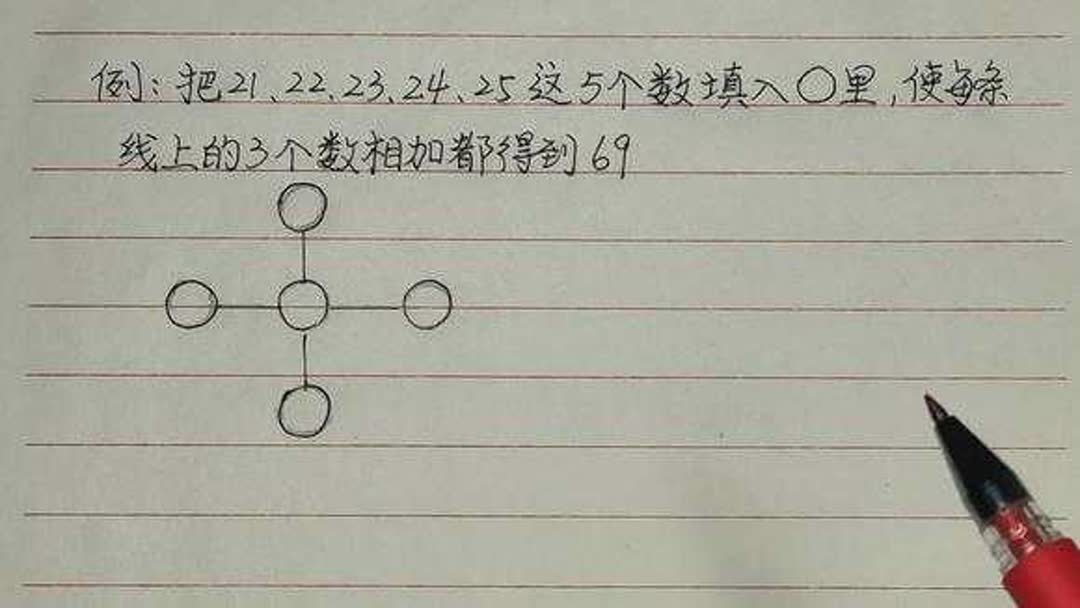 例:把21、22、23、24、25这5个数填入○里,使每条
线上的3个数相加都得到69